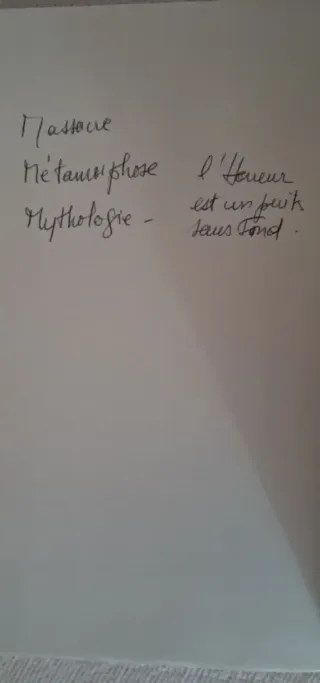 Massacre
Métamorphose
Mythologie -
l'Horreur
est un puits
sans fond.